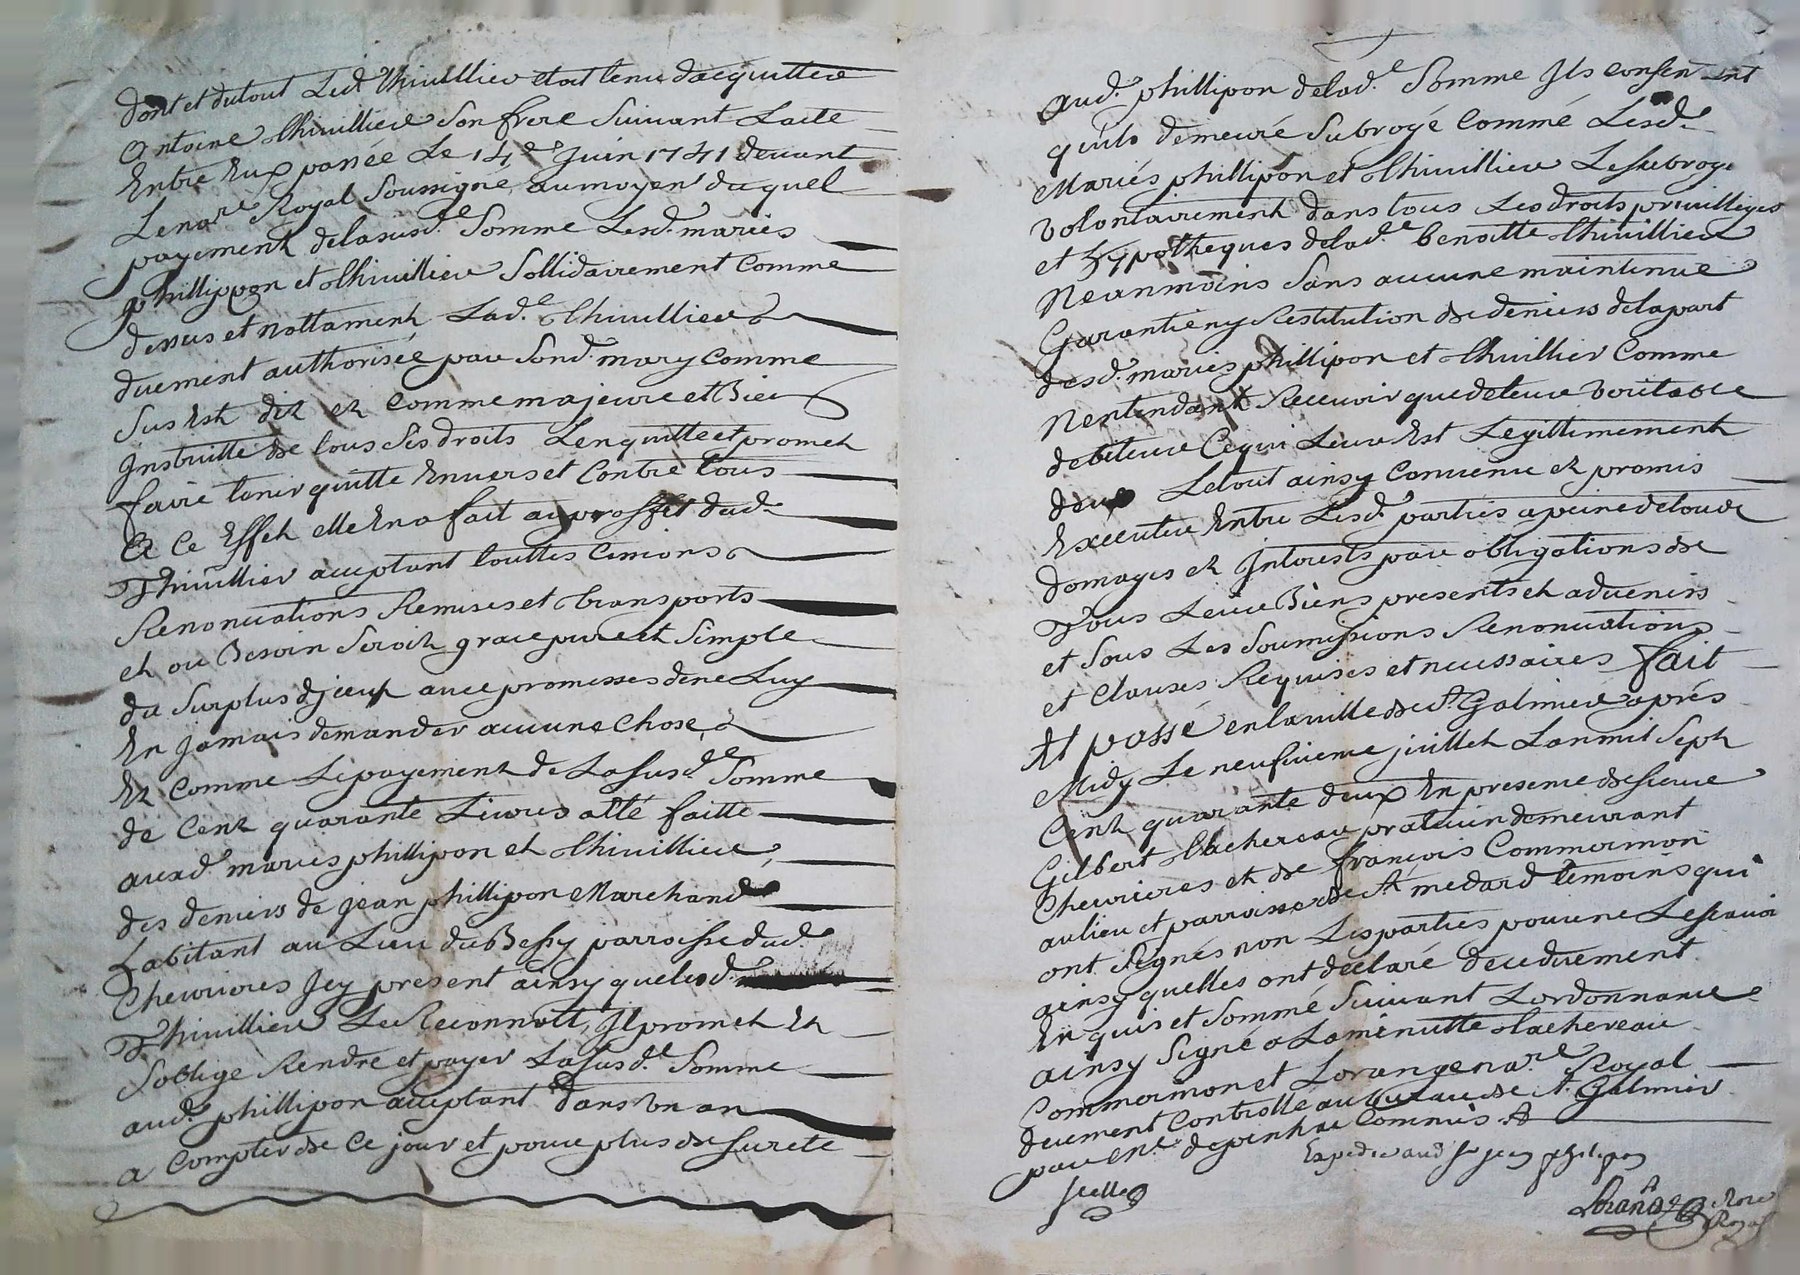 dont et du tout Led. thivillier etoit tenu d'acquitter
Antoine thivilliere Son frere Suivant Lacte
Entre Eux passée Le 14e. Juin 1741 devant
Le nore. Royal Soussigné, au moyen du quel
payement de la susd.e Somme Lesd. mariés
phillippon et thivilliere Sollidairement Comme
dessus et nottament Lad.e thivilliere
duement authorisée par Sond. mary Comme
Sus Est dit et Comme majeure et Bien
Instruitte de tous Ses droits Lenquitte et promet
faire tenir quitte Envers et Contre tous
A Ce Effet elle En a fait au proffet dud.
Thivillier acceptant touttes Cessions
Renonciations Remises et transports
et ou Besoin Seroit grace pure et Simple
du Surplus djceux avec promesses de ne Luy
En Jamais demander aucune Chose,
Et Comme Le payement de La susd.e Somme
de Cent quarante Livres a été faitte
auxd. mariés phillipon et thivilliere,
des deniers de jean phillipon Marchand
habitant au Lieu du Bessy parroisse dud.
Chevrieres Icy present ainsy que led.
Thivilliere Le Reconnoit, Il promet Et
S'oblige Rendre et payer La susd.e Somme
aud. phillipon acceptant dans un an
a Compter de Ce jour et pour plus de Sureté
aud. phillipon de lad.e Somme Ils consentent
qu'ils demeure Subrogé Commé Lesd.
Mariés phillipon et thivilliere Le Subroge
volontairement dans tous Les droits privilleges
et hypotheques de lad.e benoitte thivilliere
Neanmoins Sans aucune maintenue
Garantie ny Restitution de deniers de la part
desd. mariés phillipon et thivillier Comme
N'entendant Recevoir que de leur veritable
debiteur Ce qui Leur Est Legittimement
deub Le tout ainsy Convenu et promis
Executer Entre Lesd. parties a peine de tous
domages et Interests par obligations de
Tous Leur Biens presents et advenirs
et Sous Les Soumissions Renonciations
et Clauses Requises et necessaires fait
Et passé en la ville de St. Galmier aprés
Midy Le neufvieme juillet Lan mil Sept
Cent quarante deux En presence de sieur
Gilbert Lachereau praticien demeurant
Chevrieres et de françois Commermon
au lieu et parroisse de St. medard temoins qui
ont Signés non Les parties pour ne Le scavoir
ainsy quelles ont declaré de ce duement
Enquis et Sommé Suivant Lordonnance
ainsy Signé a La minutte Lachereau
Commermon et Lorange nore. Royal
deuement Controllé au bureau de St. Galmier
par Mr. depinhac Commis.
Expedié aud. sr jean philipon
Scellé
Lorange Nore
Royal